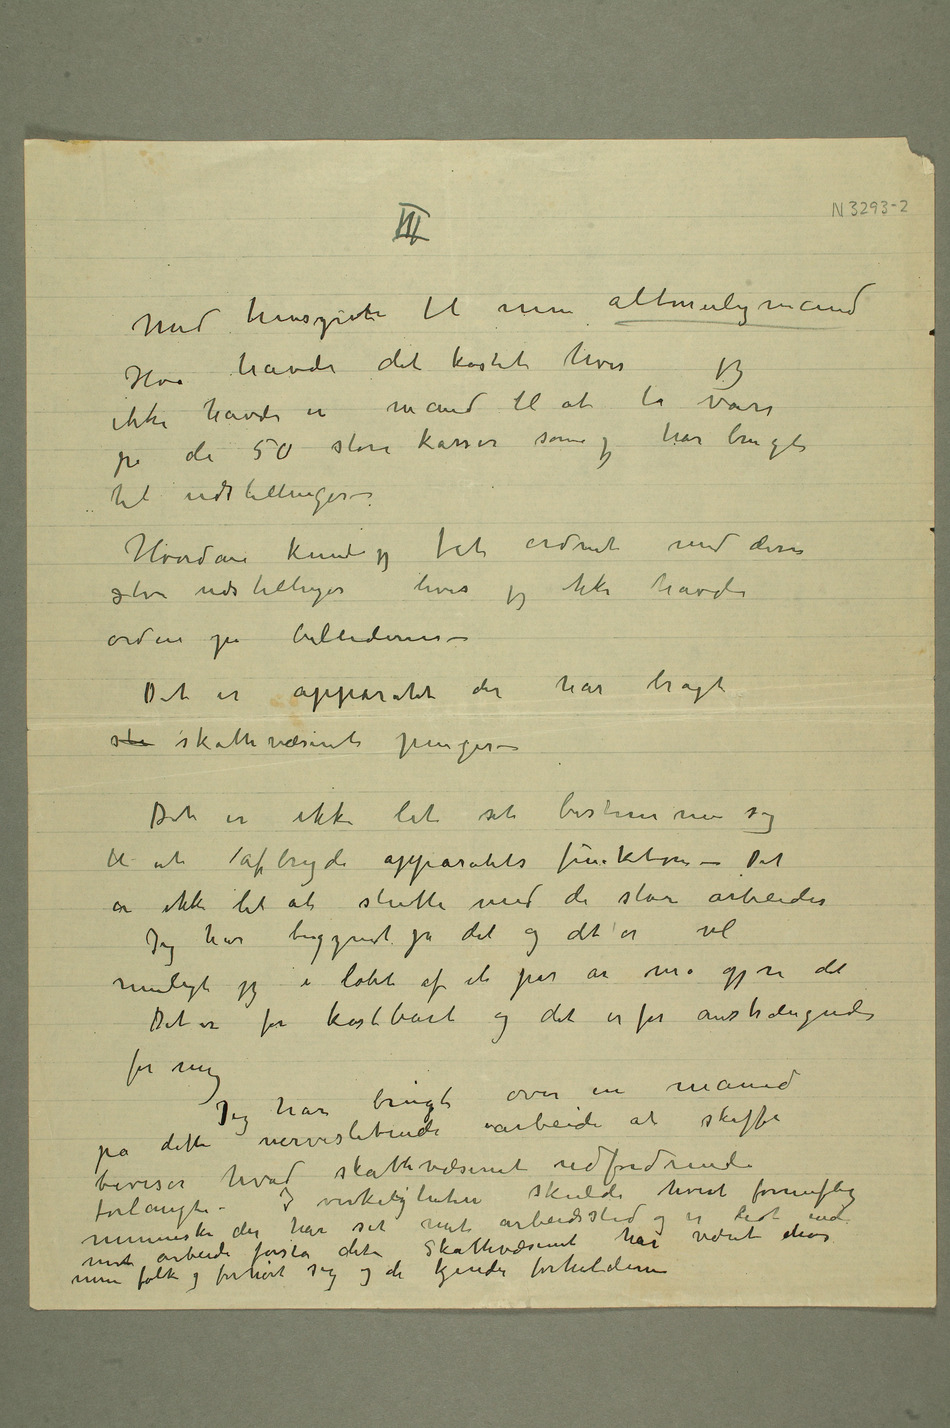 N 3293-2
III
Med hensyn til min altmuligmand
Hva havde det kostet hvis jeg
ikke havde en mand til at ta vare
på de 50 store kasser som jeg har brugt
til udstillinger –
Hvordan kunde jeg fåt ordnet med disse
store udstillinger hvis jeg ikke havde
orden på billederne –
Det er apparatet der har bragt
ska skattevæsenet penger –
Det er ikke let at bestemme sig
til at afbryde apparatets funktion – Det
er ikke let at slutte med de store arbeider
Jeg har begyndt på det og det er vel
muligt jeg i løbet af et par år må gjøre det
Det er for kostbart og det er for anstrængende
for mig
Jeg har brugt over en måned
på dette nerveslidende arbeide at skaffe
beviser hvad skattevæsenet udfordrende
forlangte – I virkeligheten skulde hvert fornuftig
menneske der har set mit arbeidssted og er lidt ind
mit arbeide forstå dette Skattevæsenet har været hos
mine folk og forhørt sig og de kjender forholdene